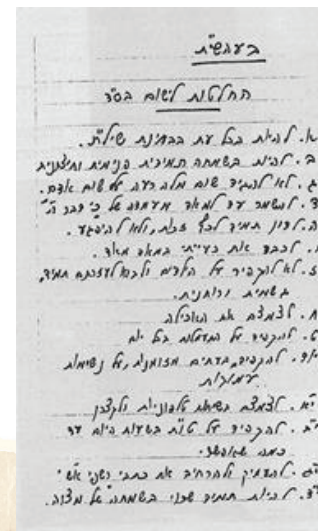 בעהשי"ת
החלטות לישום בס"ד
א. להיות בכל עת בבחינת שילת.
ב. להיות בשמחה תמידית פנימית וחיצונית
ג. לא להגיד שום מלה רעה על שום אדם.
ד. להשמר עד למאד מעמדה של כי דבר ה'
ה. לדון תמיד לכף זכות, ולא להיפגע.
ו. לכבד את רעייתי במאד מאד.
ז. לא להקפיד על הילדים ולבוא לעזרתם תמיד,
בגשמיות וברוחניות.
ח. לצמצם את האכילה
ט. להקפיד על התעמלות בכל יום
יוד. להקפיד, בעתים מזומנות, על נשימות
עמוקות
י"א. לצמצם בשיחות טלפוניות ולקצרן
י"ב. להקפיד על טו"ת בשעות היום עד
כמה שאפשר.
י"ג. להעמיק ולהרחיב את כתבי
י"ד. להיות תמיד שרוי בשמחה של מצוה.